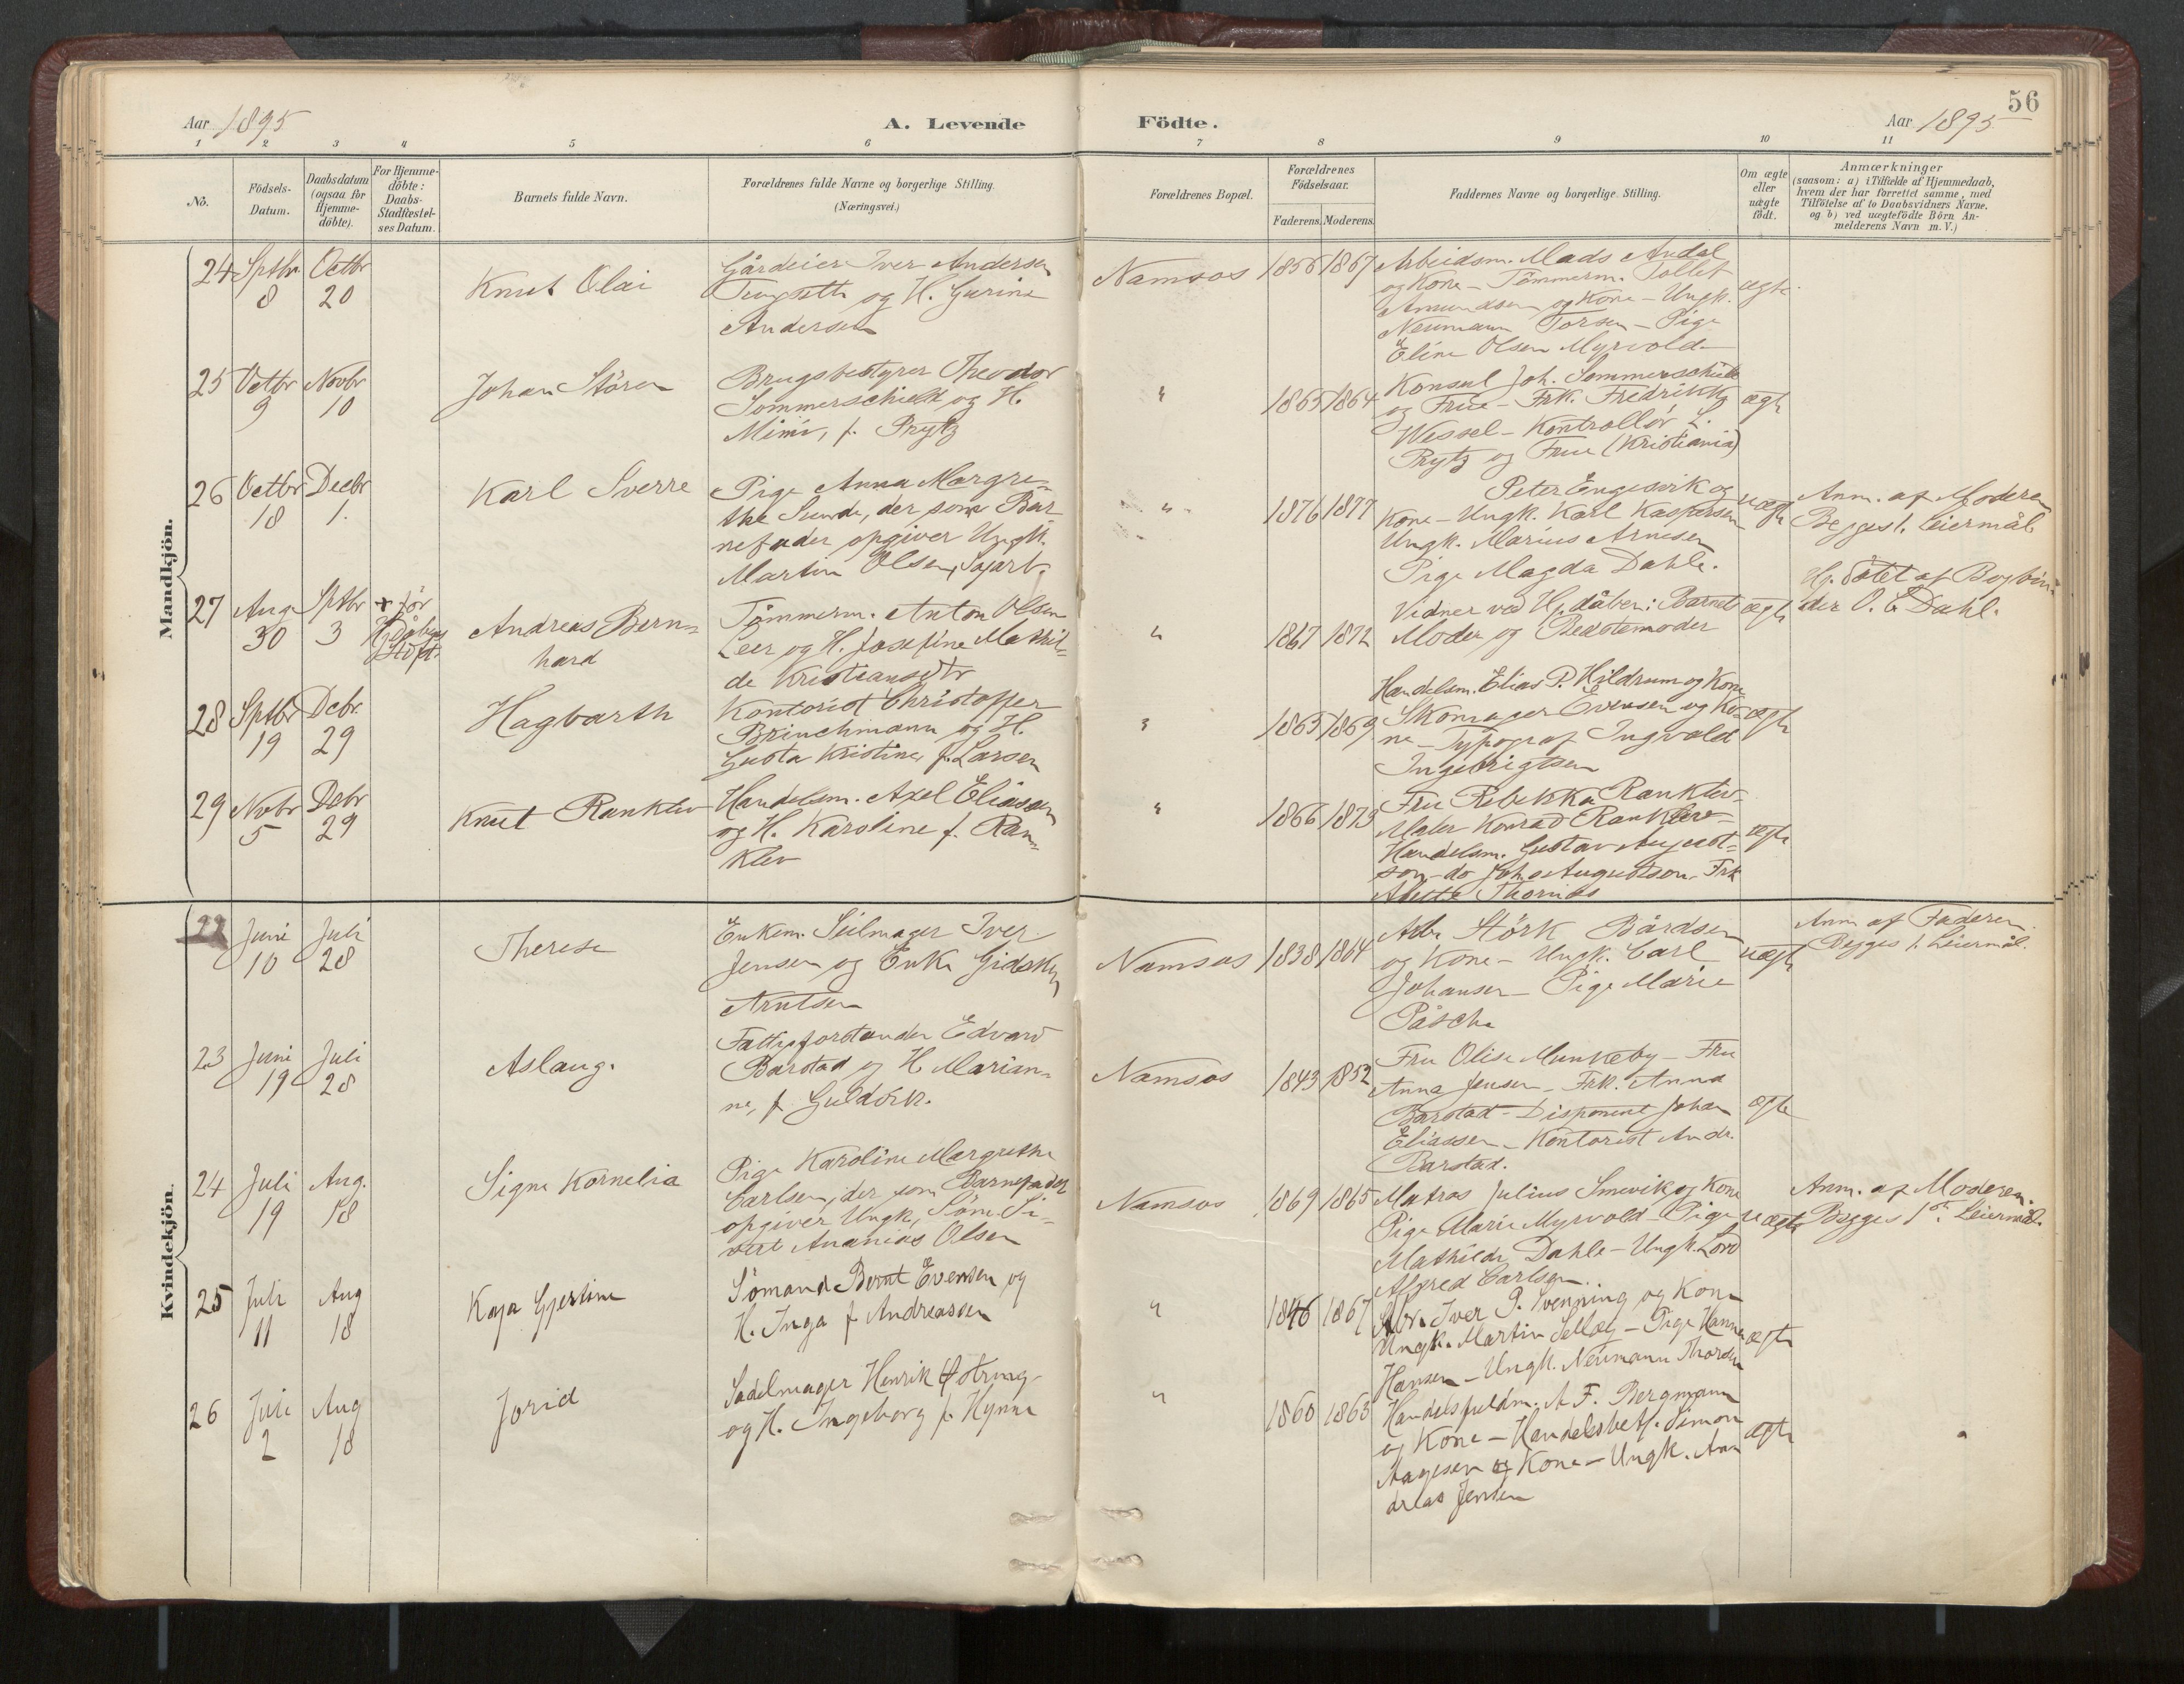 56
Aar 1895
A. Levende Födte.
Aar 1895
1 2 3 4 5 6 7 8 9 10 11
No.
Födsels-
Datum.
Daabsdatum
(ogsaa for
Hjemme-
döbte).
For Hjemme-
döbte:
Daabs-
Stadfæstel-
ses Datum.
Barnets fulde Navn.
Forældrenes fulde Navne og borgerlige Stilling.
(Næringsvei.)
Forældrenes Bopæl.
Forældrenes
Födselsaar.
Faderens. Moderens.
Faddernes Navne og borgerlige Stilling.
Om ægte
eller
uægte
födt.
Anmærkninger
(saasom: a) i Tilfælde af Hjemmedaab,
hvem der har forrettet samme, med
Tilföielse af to Daabsvidners Navne,
og b) ved uægtefödte Börn An-
melderens Navn m. V.)
Mandkjön.
24
Sptbr
8
Octbr
20
Knut Olai
Gårdeier Iver Andersen
og H. Gurine
Andersen
Namsos
1856 1867
Arbeidsm. Mads Andal
og Kone - Tömmerm. Tollef
Amundsen og Kone - Ungk.
Neumann Torsen - Pige
Eline Olsen Myrvold
ægte
25
Octbr
9
Novbr
10
Johan Stören
Brugsbestyrer Theodor
Sommerschield og H.
Mimi, f. Prytz
"
1865 1864
Konsul Joh. Sommerschield
og Frue - Frk. Fredrikke
Wessel - Kontrollör L.
Prytz og Frue (Kristiania)
ægte
26
Octbr
18
Decbr
1.
Karl Sverre
Pige Anna Margre-
the Sunde, der som Bar
nefader opgiver Ungk.
Martin Olsen, Sagarb.
"
1876 1877
Peter Engesvik og
Kone - Ungk. Karl Kaspersen
Ungk. Marius Arnesen
Pige Magda Dahle.
uægte
Anm. af Moderen
Begges 1. Leiermål
27
Aug.
30
Sptbr
3
+ för
Andreas Bern-
hard
Tömmerm. Anton Olsen
Leer og H. Josefine Mathil-
de Kristiansdtr
"
1867 1872
Vidner ved Hj. dåben: Barnets
Moder og Bedstemoder
ægte
Hj. döbt af Bogbin-
der O. E. Dahl.
28
Sptbr
19
Debr.
29
Hagbarth
Kontorist Christoffer
Brinchmann og H.
Gusta Kristine, f. Larsen
"
1865 1869
Handelsm. Elias P. Hildrum og Kone
Skomager Evensen og Ko-
ne - Typograf Ingvald
Ingebrigtsen
ægte
29
Novbr
5
Debr
29
Knut Ranklev
Handelsm. Axel Eliassen
og H. Karoline f. Ran-
klev
"
1866 1873
Fru Rebekka Ranklev -
Maler Konrad Ranklev -
Handelsm. Gustav August-
son - do Johs Augustson - Frk
Thornäs
ægte
Kvindekjön.
22
Juni
10
Juli
28
Therese
Enkem. Seilmager Iver
Jensen og Enke Gidsken
Arntsen
Namsos
1838 1864
Arb. Störk Bårdsen
og Kone - Ungk. Carl
Johansen - Pige Marie
Påsche
uægte
Anm af Faderen
Begges 1. Leiermål.
23
Juni
19
Juli
28
Aslaug.
Fattigforstander Edvard
Barstad og H. Marian-
ne, f. Guldvik.
Namsos
1843 1852
Fru Olise Munkeby - Fru
Anna Jensen - Frk. Anna
Barstad - Disponent Johan
Eliassen - Kontorist Andr.
Barstad.
ægte
24
Juli
19
Aug.
18
Signe Kornelia
Pige Karoline Margrethe
Carlsen, der som Barnefader
opgiver Ungk. Söm. Si-
vert Ananias Olsen
Namsos
1869 1865
Matros Julius Smevik og Kone
Pige Marie Myrvold - Pige
Mathilde Dahle - Ungk. Lord
Alfred Carlsen
uægte
Anm. af Moderen.
Begges 1ste Leiermål.
25
Juli
11
Aug
18
Kaja Gjertine
Sömand Bernt Evensen og
H. Inga f Andreassen
"
1846 1867
Arb. Iver P. Svenning og Kone
Ungk. Martin Sellæg - Pige Hanna
Hansen - Ungk. Neumann Thorsen
ægte
26
Juli
2
Aug
18
Jorid
Sadelmager Henrik Östring
og H. Ingeborg f. Hynne
"
1860 1863
Handelsfuldm. A F. Bergmann
og Kone - Handelsbetj. Simon
Aagesen og Kone - Ungk. An
dreas Jensen
ægte